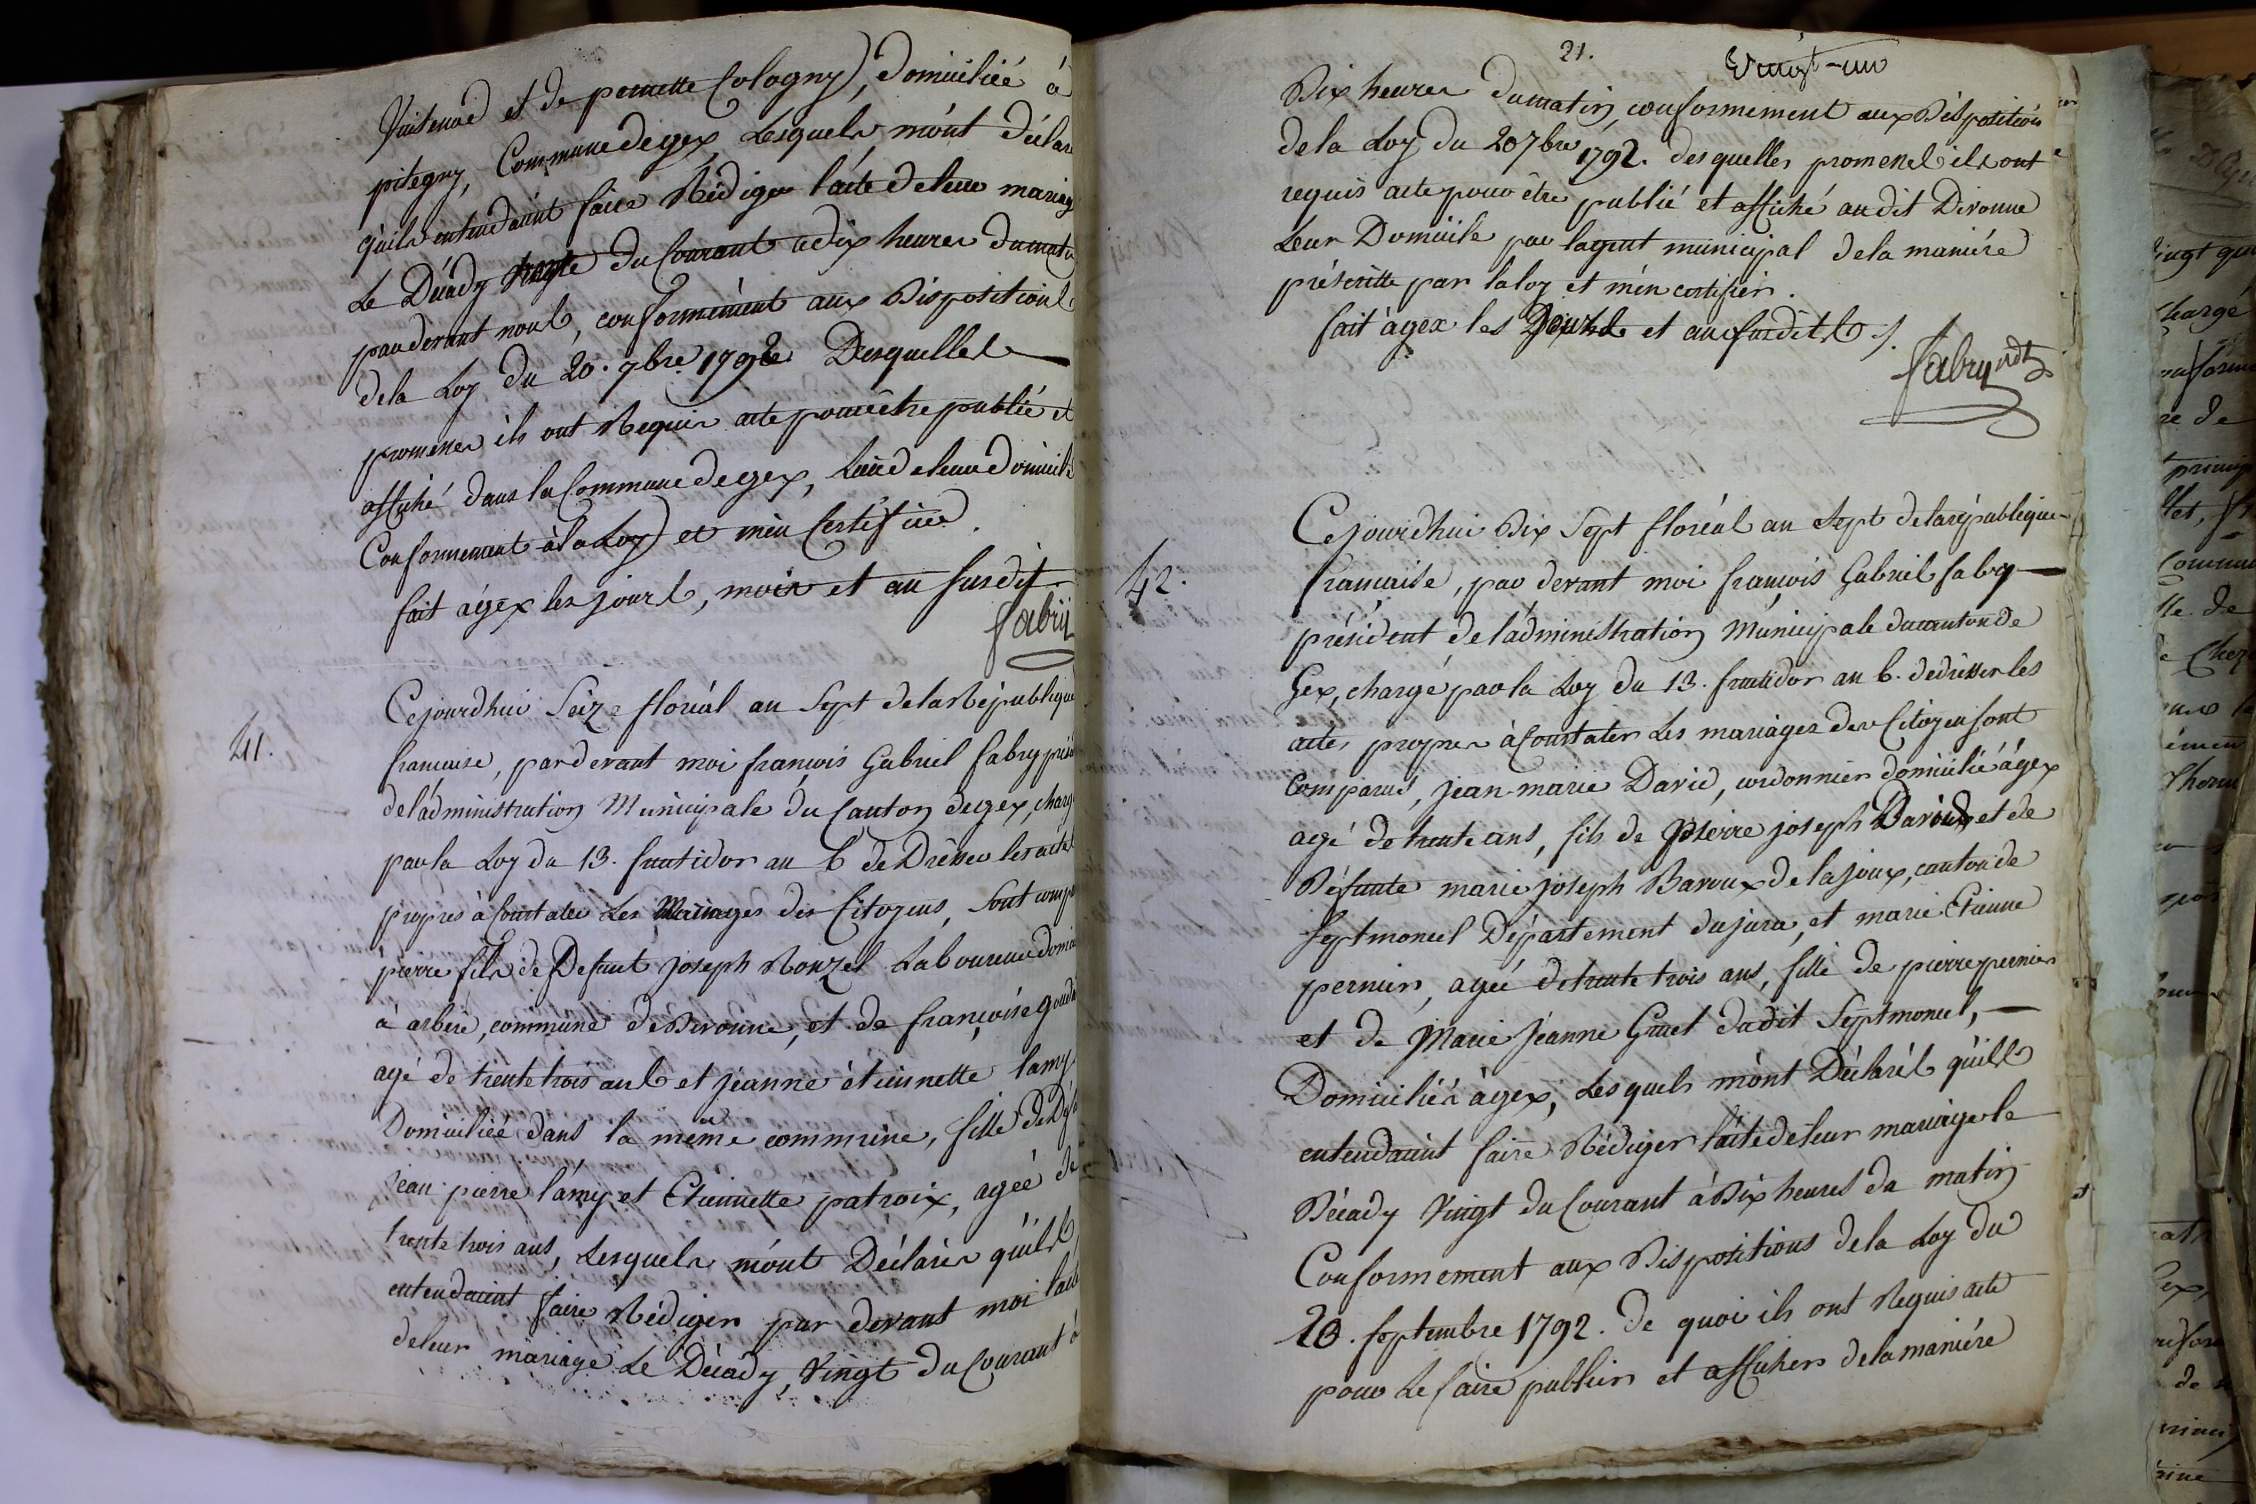 et de pernette Cologny, domiciliée à
pitegny, Commune de gex, Lesquels m'ont déclaré
qu'ils entendaint faire Rédiger l'acte de leur mariage
Le Décady trente du Courant a dix heures du matin
par devant nous, conformément aux Dispositions
de la Loy du 20. 7bre 1792 Desquelles
promesses ils ont Requis acte pour être publié et
affiché dans la Commune de gex, de leur domicile
Conformement à la Loy et m'en Certifier.
fait à gex les jours, mois et an susdit
fabry
41.
Cejourdhui Seize floréal an Sept de la République
francaise, par devant moi francois Gabriel fabry présid
de l'administration Municipale du Canton de gex, chargé
par la Loy du 13. fructidor an 6 de Dresser les actes
propres à Constater Les Mariages des Citoyens, sont comp
pierre fils de Defunt joseph Rouzet Laboureur domic
à arbere, commune de Divonne, et de françoise
agé de trente trois ans et jeanne étiennette lamy
Domiciliée dans la même commune, fille de Def
jean pierre lamy et Etiennette patroix, agée de
trente trois ans, Lesquels m'ont Déclarés qu'ils
entendaint faire Rédiger par devant moi lacte
de leur mariage Le Décady, Vingt du Courant à
21. Vingt-un
Dix heures du matin, conformement aux Dispositions
de la Loy du 20 7bre 1792. desquelles promesses ils ont
requis acte pour être publié et affiché au dit Divonne
Leur Domicile par lagent municipal de la maniére
préscritte par la loy et m'en certifier.
fait à gex les Jour et an susdits /.
fabry pdt
42.
Cejourdhui Dix Sept floréal an Sept de la république
francaise, par devant moi francois Gabriel fabry
président de l'administration Municipale du canton de
Gex, chargé par la Loy du 13. fructidor an 6. de dresser les
actes propres à Constater Les mariages des Citoyens sont
Comparus, jean-marie David, cordonnier domicilié à gex
agé de trente ans, fils de Pierre joseph David et de
Défunte marie joseph Baroux de la joux, canton de
Septmoncel Département du jura, et marie Etienne
pernier, agée de trente trois ans, fille de pierre pernier
et de Marie Jeanne Gruet dudit Septmoncel,
Domiciliés à gex, Lesquels m'ont Déclarés qu'ils
entendaint faire Rédiger l'acte de leur mariage le
Décady Vingt du Courant à Dix heures du matin
Conformement aux Dispositions de la Loy du
20. septembre 1792. de quoi ils ont Requis acte
pour Le faire publier et afficher de la maniére